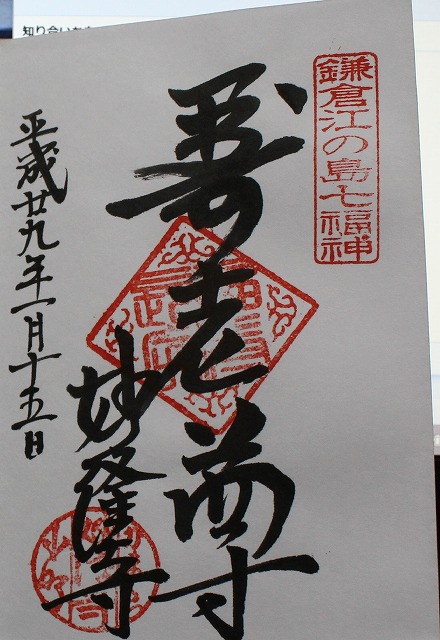 鎌倉江の島七福神
寿老尊
妙隆寺
平成廿九年一月十五日